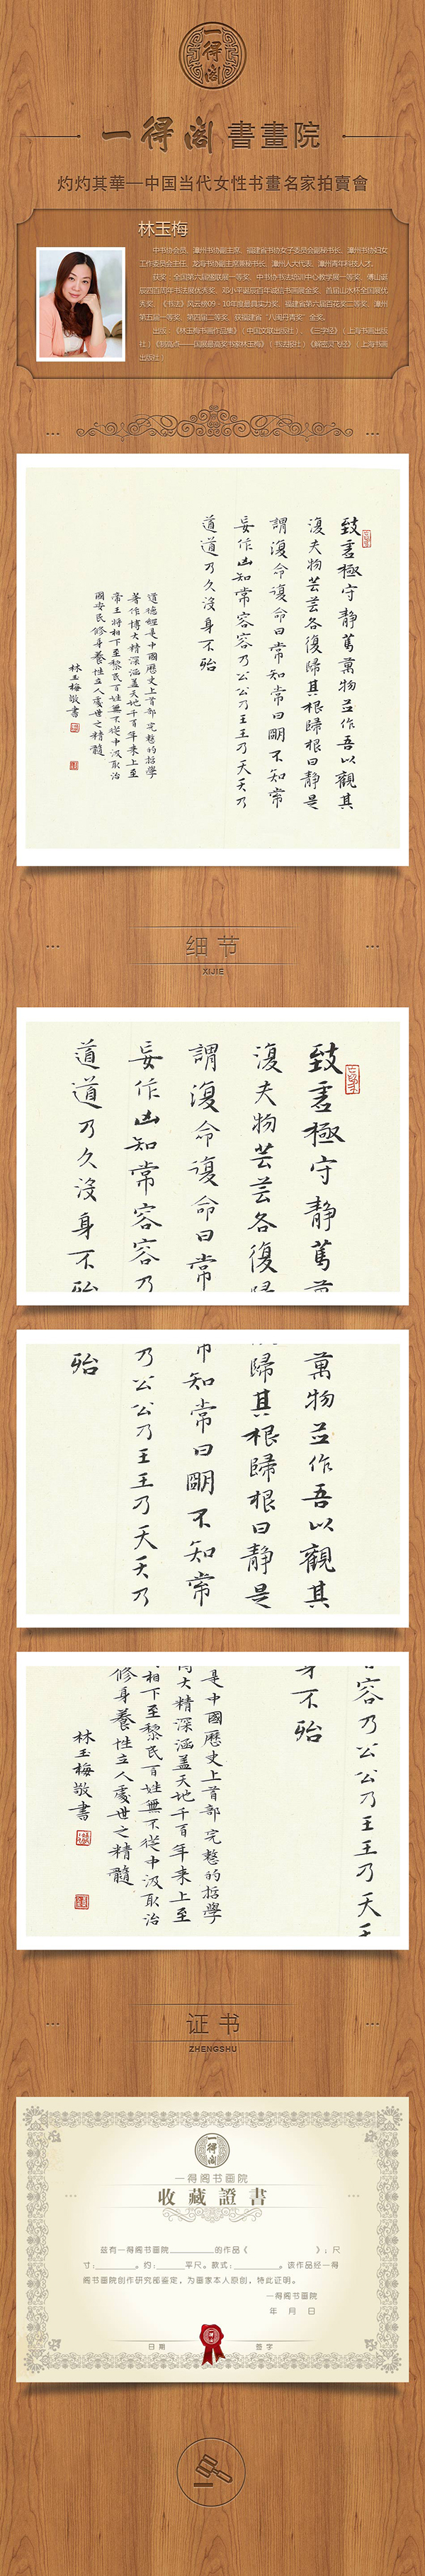 一得阁
一得阁書畫院
灼灼其華—中国当代女性书畫名家拍賣會
林玉梅
中书协会员、漳州书协副主席、福建省书协女子委员会副秘书长、漳州书协妇女
工作委员会主任、龙海书协副主席兼秘书长、漳州人大代表、漳州青年科技人才。
获奖：全国第六届楹联展一等奖、中书协书法培训中心教学展一等奖、傅山诞
辰四百周年书法展优秀奖、邓小平诞辰百年诚信书画展金奖、首届山水杯全国展优
秀奖、《书法》风云榜09－10年度最具实力奖、福建省第六届百花奖二等奖、漳州
第五届一等奖、第四届二等奖、获福建省“八闽丹青奖”金奖。
出版：《林玉梅书画作品集》（中国文联出版社）、《三字经》（上海书画出版
社）《制高点——国展最高奖书家林玉梅》（书法报社）《解密灵飞经》（上海书画
出版社）
致虛極守静萬萬物並作吾以觀其
復夫物芸芸各復歸其根歸根曰静是
謂復命復命曰常知常曰明不知常
妄作凶知常容容乃公公乃王王乃天天乃
道道乃久沒身不殆
道德經是中國歷史上首部完整的哲學
著作博大精深涵盖天地千百年来上至
帝王将相下至黎民百姓無不從中汲取治
國安民修身養性立人處世之精髓
林玉梅敬書
细节
XIJIE
致虛極守静萬
復夫物芸芸各復歸
謂復命復命曰常
妄作凶知常容容乃
道道乃久沒身不殆
萬物並作吾以觀其
歸其根歸根曰静是
知常曰明不知常
乃公公乃王王乃天天乃
殆
容乃公公乃王王乃天天
身不殆
是中國歷史上首部完整的哲學
大精深涵盖天地千百年来上至
相下至黎民百姓無不從中汲取治
修身養性立人處世之精髓
林玉梅敬書
证书
ZHENGSHU
一得阁
一得阁书画院
收藏證書
兹有一得阁书画院的作品《》；尺
寸：。约：平尺。款式：。该作品经一得
阁书画院创作研究部鉴定，为画家本人原创，特此证明。
一得阁书画院
年 月 日
日期 签字